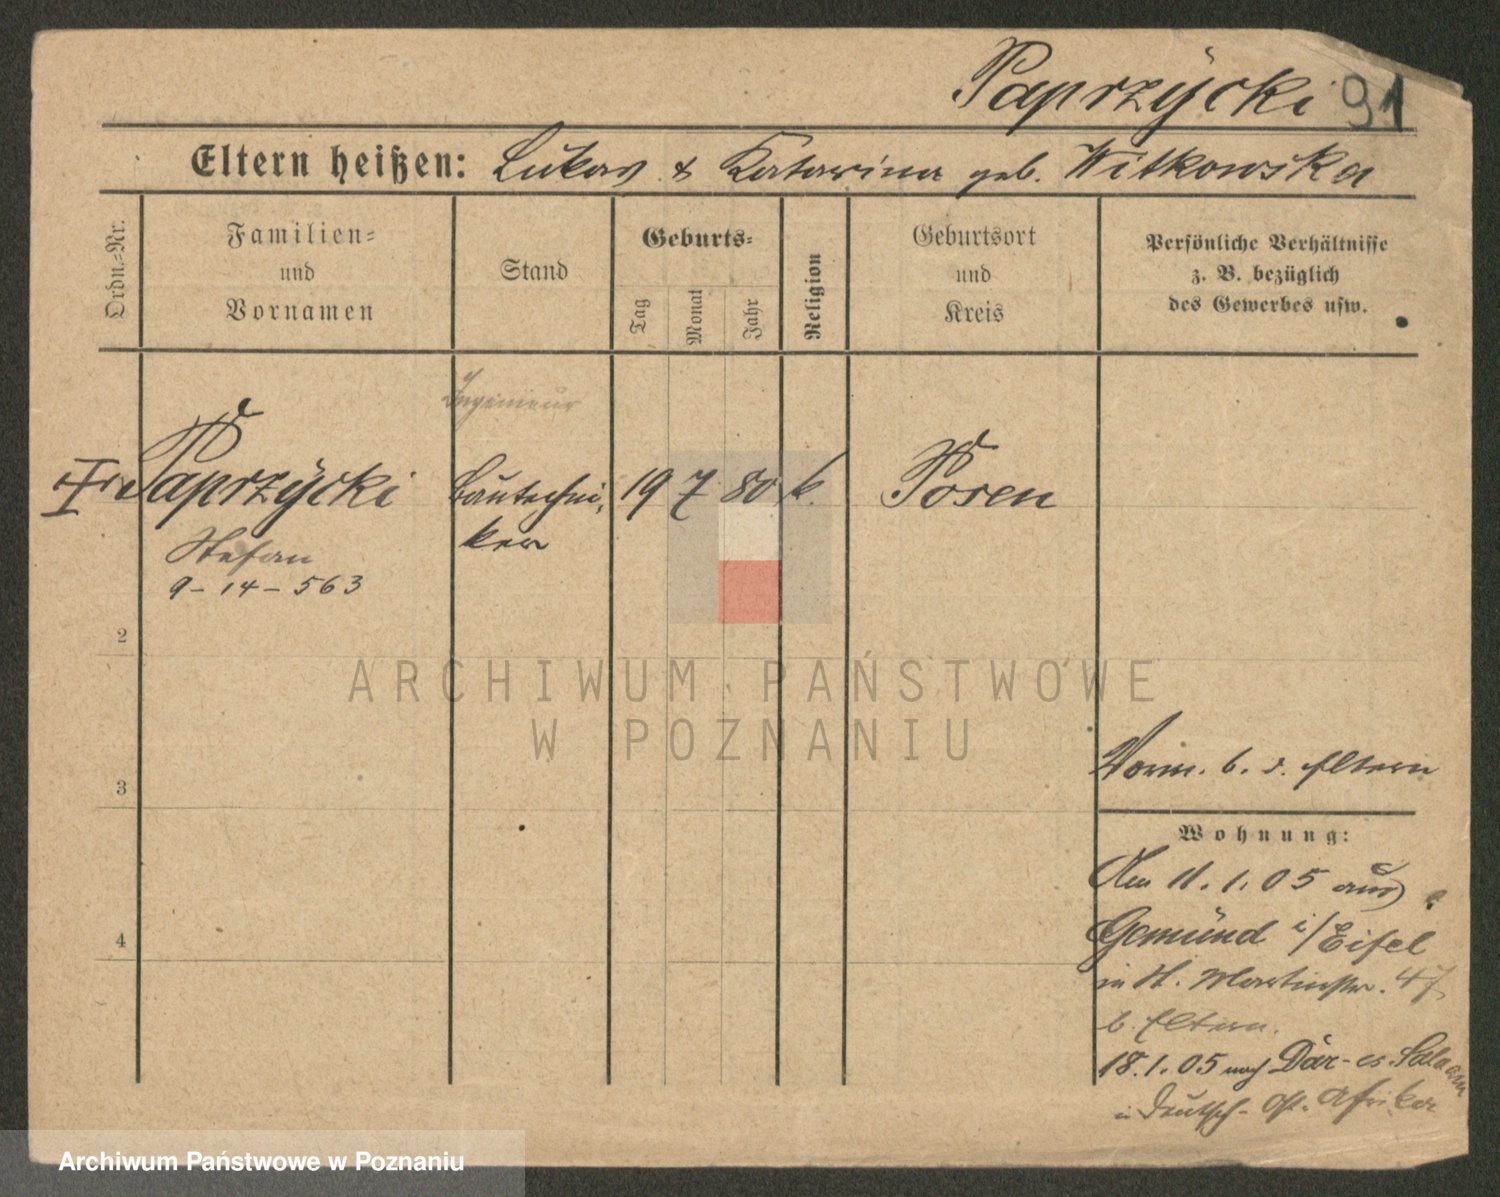 Paprzÿcki 91
Eltern heißen: Lukas & Katarina geb. Witkowska
Ordn.-Nr.
Familien-
und
Vornamen
Stand
Geburts-
Tag
Monat
Jahr
Religion
Geburtsort
und
Kreis
Persönliche Verhältnisse
z. B. bezüglich
des Gewerbes usw.
Ingenieur
I Paprzÿcki Bautechni- 19 7 80 k. Posen
ker
Stefan
9-14-563
2
3
4
Vorm. b. d. Eltern
Wohnung:
Am 11.1.05 aus
Gemünd i/Eifel
in St. Martinstr. 47
b. Eltern.
18.1.05 nach Dar-es-Salaam
in Deutsch-Ost-Afrika
ARCHIWUM PAŃSTWOWE
W POZNANIU
Archiwum Państwowe w Poznaniu